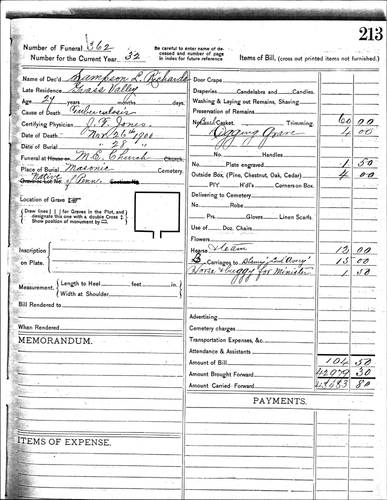 213
Number of Funeral 362
Number for the Current Year 32
Be careful to enter name of deceased and number of page in index for future reference
Items of Bill. (cross out printed items not furnished.)
Name of Dec'd Sampson L. Richards
Late Residence Grass Valley
Age 29 years months days
Cause of Death Tuberculosis
Certifying Physician J. F. Jones
Date of Death Nov 26th 1900
Date of Burial " 28 "
Funeral at House or M.E. Church Church.
Place of Burial Masonic Cemetery.
Native of Penn.
Location of Grave
Draw lines | | for Graves in the Plot, and designate this one with a double Cross
Show position of monument by
Inscription on Plate.
Measurement. Length to Heel feet in.
Width at Shoulder
Bill Rendered to
When Rendered
MEMORANDUM.
ITEMS OF EXPENSE.
Door Crape
Draperies Candelabra and Candles.
Washing & Laying out Remains, Shaving
Preservation of Remains
No. Casket. Trimming. 60 00
Digging Grave 4 00
No. Handles
No. Plate engraved 1 50
Outside Box (Pine, Chestnut, Oak, Cedar) 4 00
P/Y H'd's Corners on Box.
Delivering to Cemetery
No. Robe
Prs. Gloves Linen Scarfs.
Use of Doz. Chairs
Flowers
Hearse & team 12 00
Carriages to 15 00
Horse & buggy for Minister 1 50
Advertising
Cemetery charges
Transportation Expenses, &c.
Attendance & Assistants
Amount of Bill 104 50
Amount Brought Forward 30
Amount Carried Forward 80
PAYMENTS.